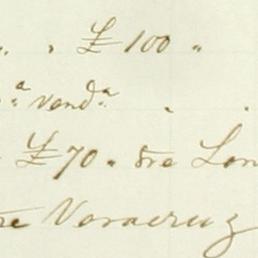 " " £ 100 "
"ª vendª " "
£ 70 " sre Lon
sre Veracruz